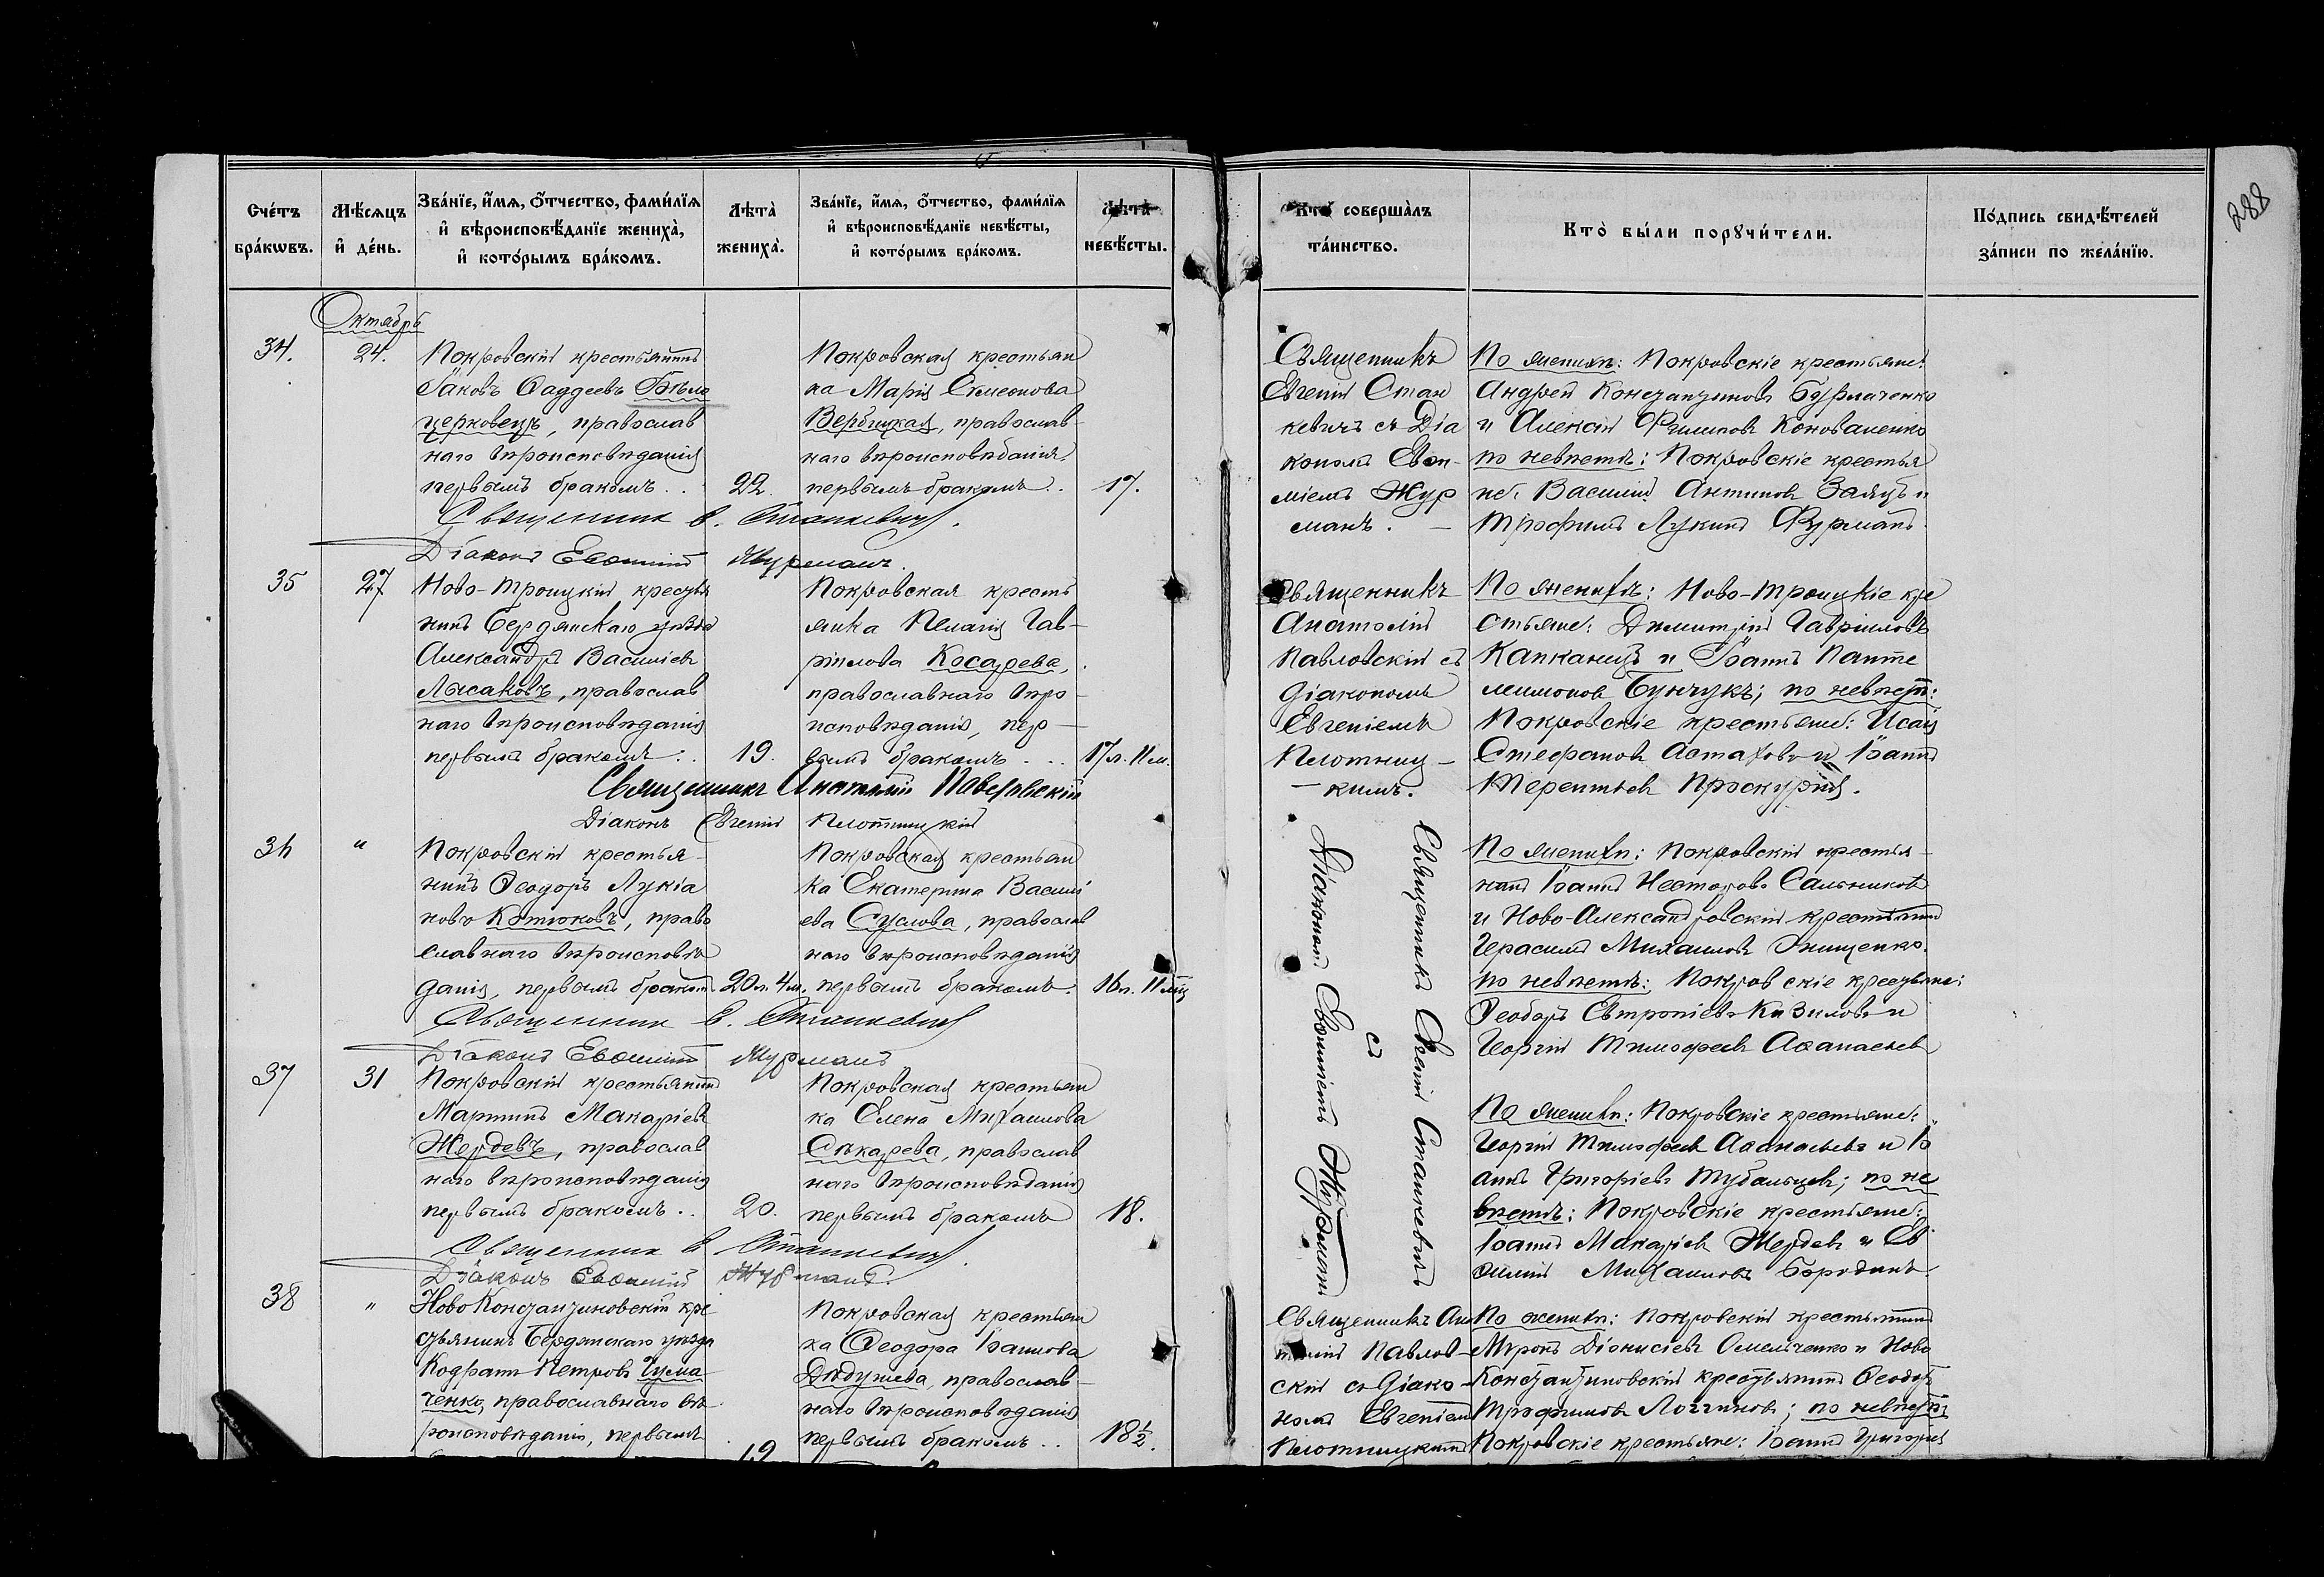 288
Счетъ браковъ.
Мѣсяцъ и день.
Званіе, имя, отчество, фамилія и вѣроисповѣданіе жениха, и которымъ бракомъ.
Лѣта жениха.
Званіе, имя, отчество, фамилія и вѣроисповѣданіе невѣсты, и которымъ бракомъ.
Лѣта невѣсты.
Кто совершалъ таинство.
Кто были поручители.
Подпись свидѣтелей записи по желанію.
Октябрь
34.
24.
Покровскій крестьянинъ
Іаковъ Фаддеевъ Бѣло
церковецъ, православ
наго вѣроисповѣданія
первымъ бракомъ..
22.
Покровская крестьян
ка Марія Симеонова
Вербицкая, православ-
наго вѣроисповѣданія,
первымъ бракомъ..
17.
Священникъ
Евгеній Стан
кевичъ съ Діа
кономъ Евѳи-
міемъ Жур
манъ. –
По женихѣ: Покровскіе крестьяне:
Андрей Константиновъ Бурлаченко
и Алексій Филиповъ Коноваленко
по невѣстѣ: Покровскіе крестья
не: Василій Антиповъ Заяцъ и
Трофимъ Лукинъ Фурманъ.
Священникъ Е. Станкевичъ.
Діаконъ Евѳимій Журманъ.
35
27
Ново-Троицкій крестья
нинъ Бердянскаго уѣзда
Александръ Василіевъ
Лысаковъ, православ
наго вѣроисповѣданія
первымъ бракомъ:.
19.
Покровская кресть
янка Пелагія Гав-
ріилова Косарева,
православнаго вѣро-
исповѣданія, пер-
вымъ бракомъ...
17л. 11м.
Священникъ
Анатолій
Павловскій съ
діакономъ
Евгеніемъ
Плотниц-
кимъ.
По женихѣ: Ново-Троицкіе кре
стьяне: Димитрій Гавриловъ
Капканецъ и Іоаннъ Панте
леимоновъ Бунчукъ; по невѣстѣ:
Покровскіе крестьяне: Исаія
Стефановъ Астаховъ и Іоаннъ
Терентьевъ Проскурня.
Священникъ Анатолій Павловскій
Діаконъ Евгеній Плотницкій
36
"
Покровскій крестья-
нинъ Ѳеодоръ Лукіа
новъ Котюковъ, право
славнаго вѣроисповѣ
данія, первымъ бракомъ.
20л. 4м.
Покровская крестьян
ка Екатерина Васили
ева Суслова, православ
наго вѣроисповѣданія
первымъ бракомъ.
16л. 11мц
Священникъ Евгеній Станкевичъ
съ
Діакономъ Евѳиміемъ Журманъ
По женихѣ: Покровскій крестья-
нинъ Іоаннъ Несторовъ Сальниковъ
и Ново-Александровскій крестьянинъ
Герасимъ Михаиловъ Онищенко.
по невѣстѣ: Покровскіе крестьяне:
Ѳеодоръ Евтропіевъ Казиловъ и
Георгій Тимофеевъ Аѳанасьевъ
Священникъ Е. Станкевичъ
Діаконъ Евѳимій Журманъ
37
31
Покровскій крестьянинъ
Мартинъ Макаріевъ
Жердевъ, православ
наго вѣроисповѣданія
первымъ бракомъ..
20.
Покровская крестьян
ка Елена Михаилова
Сѣкарева, православ
наго вѣроисповѣданія
первымъ бракомъ
18.
По женихѣ: Покровскіе крестьяне:
Георгій Тимофеевъ Аѳанасьевъ и Іо
аннъ Григоріевъ Тубальцевъ; по не
вѣстѣ: Покровскіе крестьяне:
Іоаннъ Макаріевъ Жердевъ и Ев
ѳимій Михаиловъ Бородинъ.
Священникъ Е. Станкевичъ.
Діаконъ Евѳимій Журманъ.
38
"
Ново Константиновскій кре
стьянинъ Бердянскаго уѣзда
Кодратъ Петровъ Чума
ченко, православнаго вѣ
роисповѣданія, первымъ
19
Покровская крестьян
ка Ѳеодора Іоаннова
Дѣдушева, православ-
наго вѣроисповѣданія
первымъ бракомъ..
18½.
Священникъ Ана
толій Павлов-
скій съ діако-
номъ Евгеніемъ
Плотницкимъ
По женихѣ: Покровскій крестьянинъ
Миронъ Діонисіевъ Омельченко и Ново
Константиновскій крестьянинъ Ѳеодоръ
Трофимовъ Логгиновъ; по невѣстѣ
Покровскіе крестьяне: Іоаннъ Григоріев